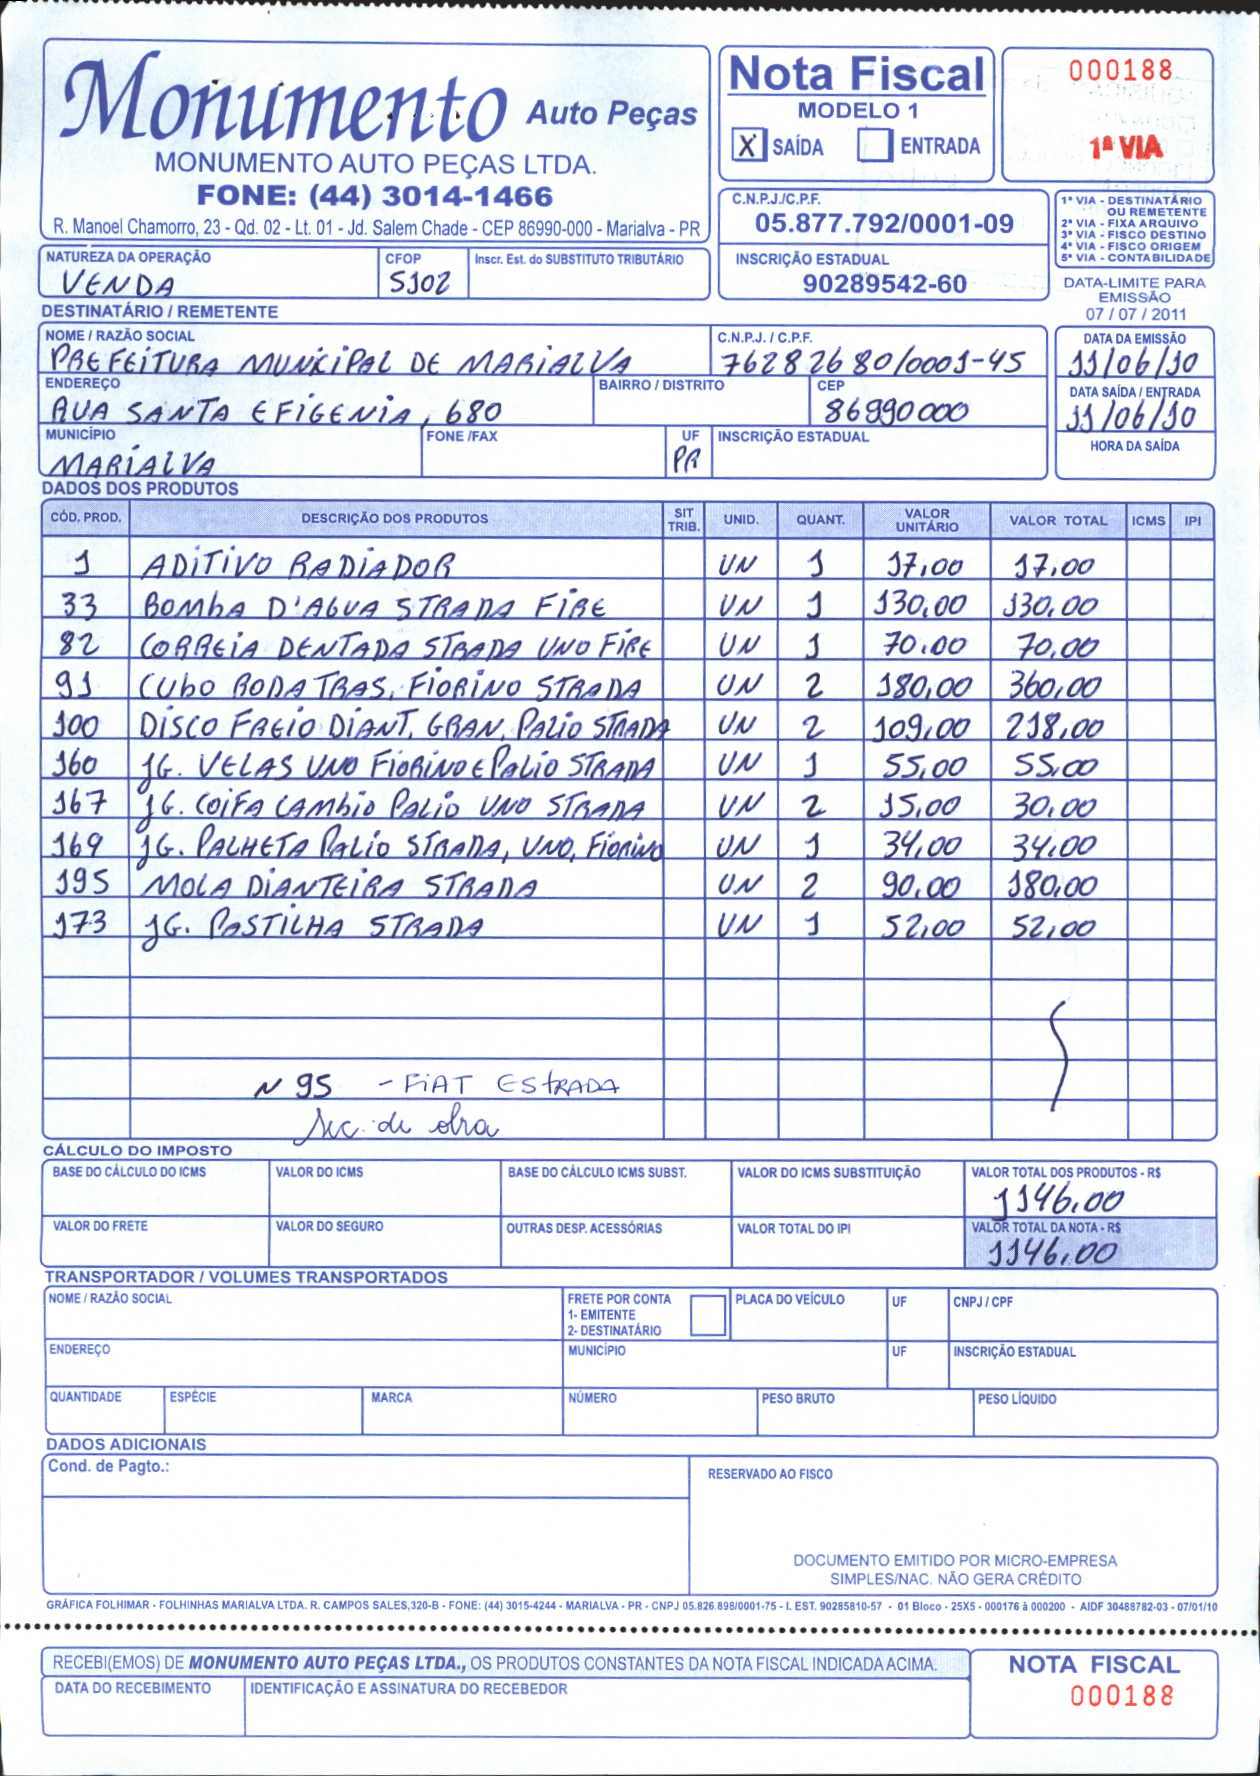 Monumento Auto Peças
MONUMENTO AUTO PEÇAS LTDA.
FONE: (44) 3014-1466
R. Manoel Chamorro, 23 - Qd. 02 - Lt. 01 - Jd. Salem Chade - CEP 86990-000 - Marialva - PR
Nota Fiscal
MODELO 1
X SAÍDA ENTRADA
000188
1ª VIA
C.N.P.J./C.P.F.
05.877.792/0001-09
INSCRIÇÃO ESTADUAL
90289542-60
1ª VIA - DESTINATÁRIO
OU REMETENTE
2ª VIA - FIXA ARQUIVO
3ª VIA - FISCO DESTINO
4ª VIA - FISCO ORIGEM
5ª VIA - CONTABILIDADE
NATUREZA DA OPERAÇÃO CFOP Inscr. Est. do SUBSTITUTO TRIBUTÁRIO
VENDA 5102
DATA-LIMITE PARA
EMISSÃO
07 / 07 / 2011
DESTINATÁRIO / REMETENTE
NOME / RAZÃO SOCIAL C.N.P.J. / C.P.F. DATA DA EMISSÃO
PREFEITURA MUNICIPAL DE MARIALVA 76282680/0001-45 11/06/10
ENDEREÇO BAIRRO / DISTRITO CEP DATA SAÍDA / ENTRADA
RUA SANTA EFIGENIA, 680 86990000 11/06/10
MUNICÍPIO FONE /FAX UF INSCRIÇÃO ESTADUAL HORA DA SAÍDA
MARIALVA PR
DADOS DOS PRODUTOS
CÓD. PROD. DESCRIÇÃO DOS PRODUTOS SIT TRIB. UNID. QUANT. VALOR UNITÁRIO VALOR TOTAL ICMS IPI
1 ADITIVO RADIADOR UN 1 17,00 17,00
33 BOMBA D'AGUA STRADA FIRE UN 1 130,00 130,00
82 CORREIA DENTADA STRADA UNO FIRE UN 1 70,00 70,00
91 CUBO RODA TRAS. FIORINO STRADA UN 2 180,00 360,00
100 DISCO FREIO DIANT. GRAN. PALIO STRADA UN 2 109,00 218,00
160 JG. VELAS UNO FIORINO E PALIO STRADA UN 1 55,00 55,00
167 JG. COIFA CAMBIO PALIO UNO STRADA UN 2 15,00 30,00
169 JG. PALHETA PALIO STRADA, UNO, FIORINO UN 1 34,00 34,00
195 MOLA DIANTEIRA STRADA UN 2 90,00 180,00
173 JG. PASTILHA STRADA UN 1 52,00 52,00
N 95 - FIAT ESTRADA
Sec. de obra
CÁLCULO DO IMPOSTO
BASE DO CÁLCULO DO ICMS VALOR DO ICMS BASE DO CÁLCULO ICMS SUBST. VALOR DO ICMS SUBSTITUIÇÃO VALOR TOTAL DOS PRODUTOS - R$
1146,00
VALOR DO FRETE VALOR DO SEGURO OUTRAS DESP. ACESSÓRIAS VALOR TOTAL DO IPI VALOR TOTAL DA NOTA - R$
1146,00
TRANSPORTADOR / VOLUMES TRANSPORTADOS
NOME / RAZÃO SOCIAL FRETE POR CONTA PLACA DO VEÍCULO UF CNPJ / CPF
1- EMITENTE
2- DESTINATÁRIO
ENDEREÇO MUNICÍPIO UF INSCRIÇÃO ESTADUAL
QUANTIDADE ESPÉCIE MARCA NÚMERO PESO BRUTO PESO LÍQUIDO
DADOS ADICIONAIS
Cond. de Pagto.:
RESERVADO AO FISCO
DOCUMENTO EMITIDO POR MICRO-EMPRESA
SIMPLES/NAC. NÃO GERA CRÉDITO
GRÁFICA FOLHIMAR - FOLHINHAS MARIALVA LTDA. R. CAMPOS SALES,320-B - FONE: (44) 3015-4244 - MARIALVA - PR - CNPJ 05.826.898/0001-75 - I. EST. 90285810-57 - 01 Bloco - 25X5 - 000176 à 000200 - AIDF 30488782-03 - 07/01/10
RECEBI(EMOS) DE MONUMENTO AUTO PEÇAS LTDA., OS PRODUTOS CONSTANTES DA NOTA FISCAL INDICADA ACIMA.
DATA DO RECEBIMENTO IDENTIFICAÇÃO E ASSINATURA DO RECEBEDOR
NOTA FISCAL
000188